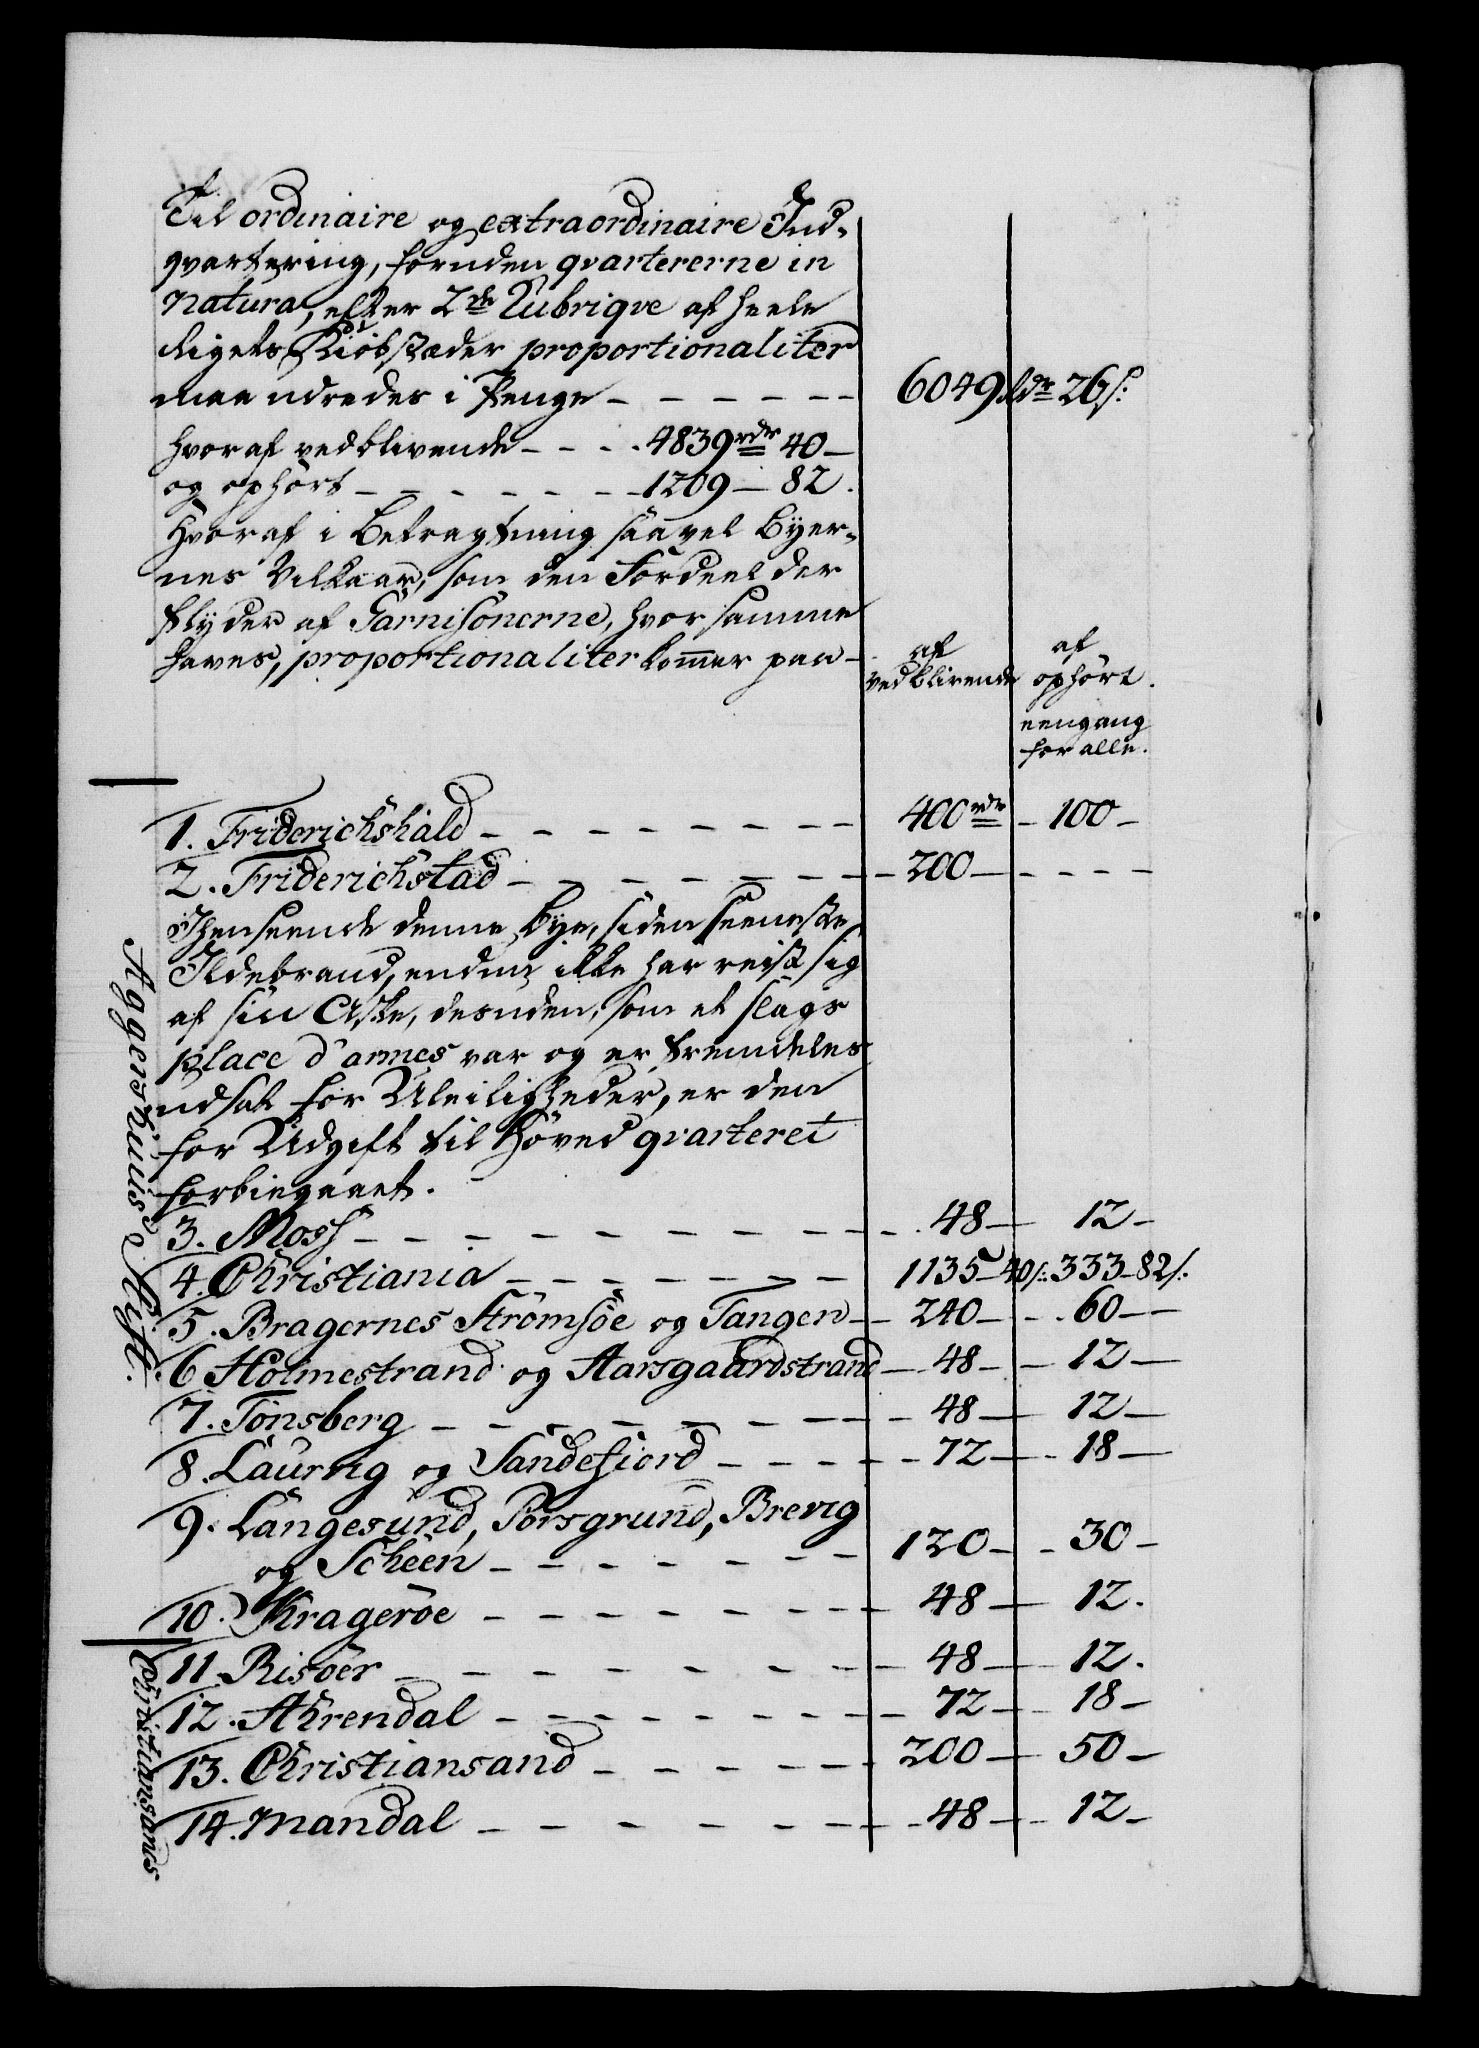 Til ordinaire og extraordinaire Ind-
qvartering, foruden qvartererne in
natura, efter 2de Rubriqve af heele
Rigets Kiöbstæder proportionaliter
maa udredes i Penge - - - - - - 6049 Rdr 26 s:
hvoraf vedblivende - - - . 4839 rdr 40 -
og ophört - - - - - - - 1209 - 82.
Hvoraf i Betragtning saavel Byer-
nes Vilkaar, som den Fordeel der
flyder af Garnisonerne, hvor samme
haves, proportionaliter kommer paa -
af vedblivende
af ophört.
eengang
for alle.
1. Friderichshald - - - - - - - - 400 rdr - 100 -
2. Friderichstad - - - - - - - - 200 - - - - -
I henseende denne Bye, siden seeneste
Ildebrand, endnu ikke har reist sig
af sin Aske, desuden, som et slags
place d'armes var og er fremdeles
udsat for Uleiligheder, er den
for Udgift til Hoved qvarteret
forbiegaaet.
3. Moss - - - - - - - - - . 48 - 12 -
4. Christiania - - - - - - - 1135 - 40 s: 333 - 82 s:
5. Bragernes Strömsöe og Tangen - - 240 - - . 60 -
6 Holmestrand og Aarsgaardstrand - 48 - - 12 -
7. Tönsberg - - - - - - - - 48 - 12 -
8. Laurvig og Sandefiord - - - - - - 72 - - 18 -
9. Langesund, Porsgrund, Brevig
og Scheen - - - - - - - 120 - - 30 -
10. Krageröe - - - - - - - - 48 - 12.
11. Risöer - - - - - - - - 48 - 12.
12. Ahrendal - - - - - - - - 72 - - 18 -
13. Christiansand - - - - - - 200 - 50 -
14. Mandal - - - - - - - - 48 - - 12 -
Aggershuus Stift.
Christiansands